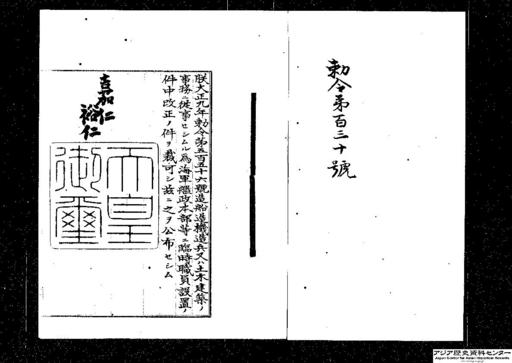 勅令第百三十號
朕大正九年勅令第五百五十六號造船造機造兵又ハ土木建築ノ
事務ニ従事セシムル為海軍艦政本部等ニ臨時職員設置ノ
件中改正ノ件ヲ裁可シ茲ニ之ヲ公布セシム
嘉仁
裕仁
天皇
御璽
アジア歴史資料センター
Japan Center for Asian Historical Records